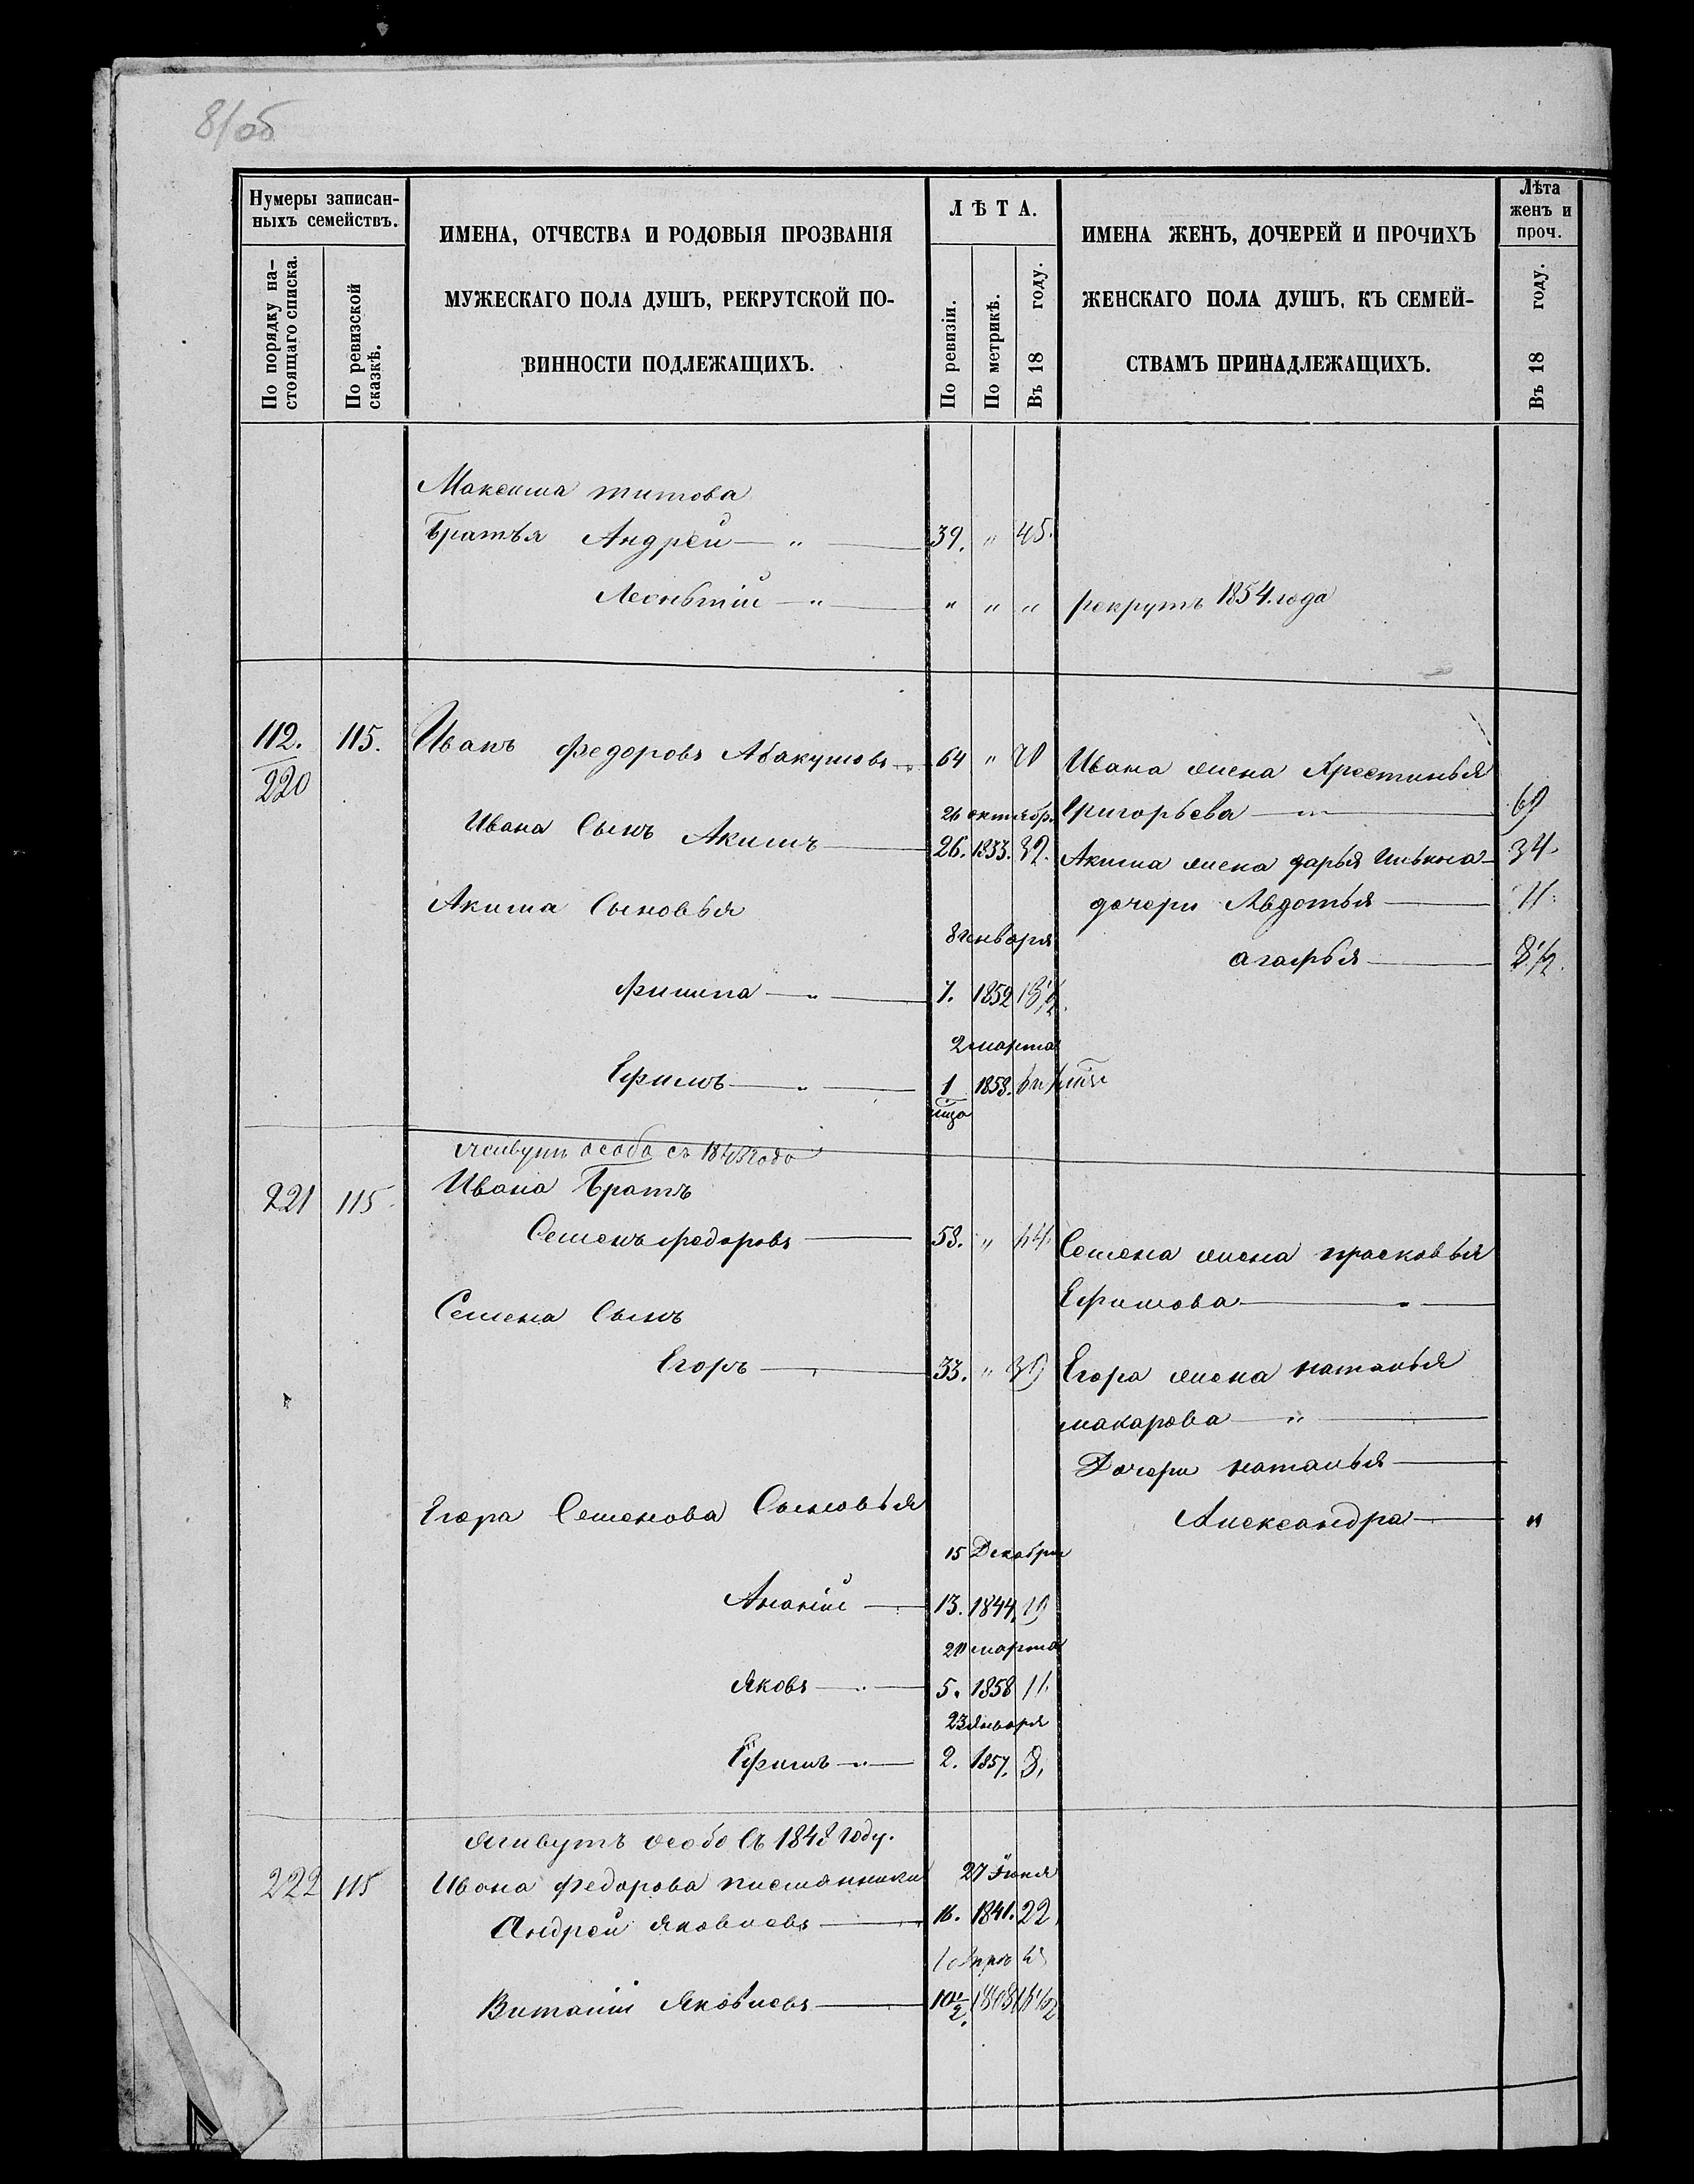 8/об
Нумеры записан-
ныхъ семействъ.
По порядку на-
стоящаго списка.
По ревизской
сказкѣ.
ИМЕНА, ОТЧЕСТВА И РОДОВЫЯ ПРОЗВАНІЯ
МУЖЕСКАГО ПОЛА ДУШЪ, РЕКРУТСКОЙ ПО-
ВИННОСТИ ПОДЛЕЖАЩИХЪ.
ЛѢТА.
По ревизіи.
По метрикѣ.
Въ 18 году.
ИМЕНА ЖЕНЪ, ДОЧЕРЕЙ И ПРОЧИХЪ
ЖЕНСКАГО ПОЛА ДУШЪ, КЪ СЕМЕЙ-
СТВАМЪ ПРИНАДЛЕЖАЩИХЪ.
Лѣта
женъ и
проч.
Въ 18 году.
Максима титова
Братья Андрей — „ — 39. „ 45.
Леонтій — „ — „ „ „ рекрутъ 1854. года
112. 115. Иванъ федоровъ Абакумовъ 64 „ 70 Ивана жена Хрестинья
220
26 октябр. Григорьева — „ — 69
Ивана Сынъ Акимъ — 26. 1833. 32. Акима жена дарья Ильина — 34
Акима Сыновья дочери Авдотья — 11.
8 Генваря агафья — 8 1/2.
Филипа — „ — 7. 1852 13 1/2.
2 марта
Ефимъ — „ — 1 1858.
Живутъ особо съ
221 115 Ивана Братъ
Семенъ федоровъ — 58. „ 64. Семена жена прасковья
Семена Сынъ Ефимова — „ —
Егоръ — „ — 33. „ 39 Егора жена наталья
макарова — „ —
Дочери наталья —
Егора Семенова Сыновья Александра — „
15 Декабря
Ананій — 13. 1844. 19
20 марта
Яковъ — „ — 5. 11.
23 Января
Ефимъ — „ — 2. 1857. 8.
Живутъ особо Съ 1848 Году.
222 115 Ивана Федорова племянники 27 Іюня
Андрей Яковлевъ — 16. 1841. 22
Виталій Яковлевъ — 10 1/2.